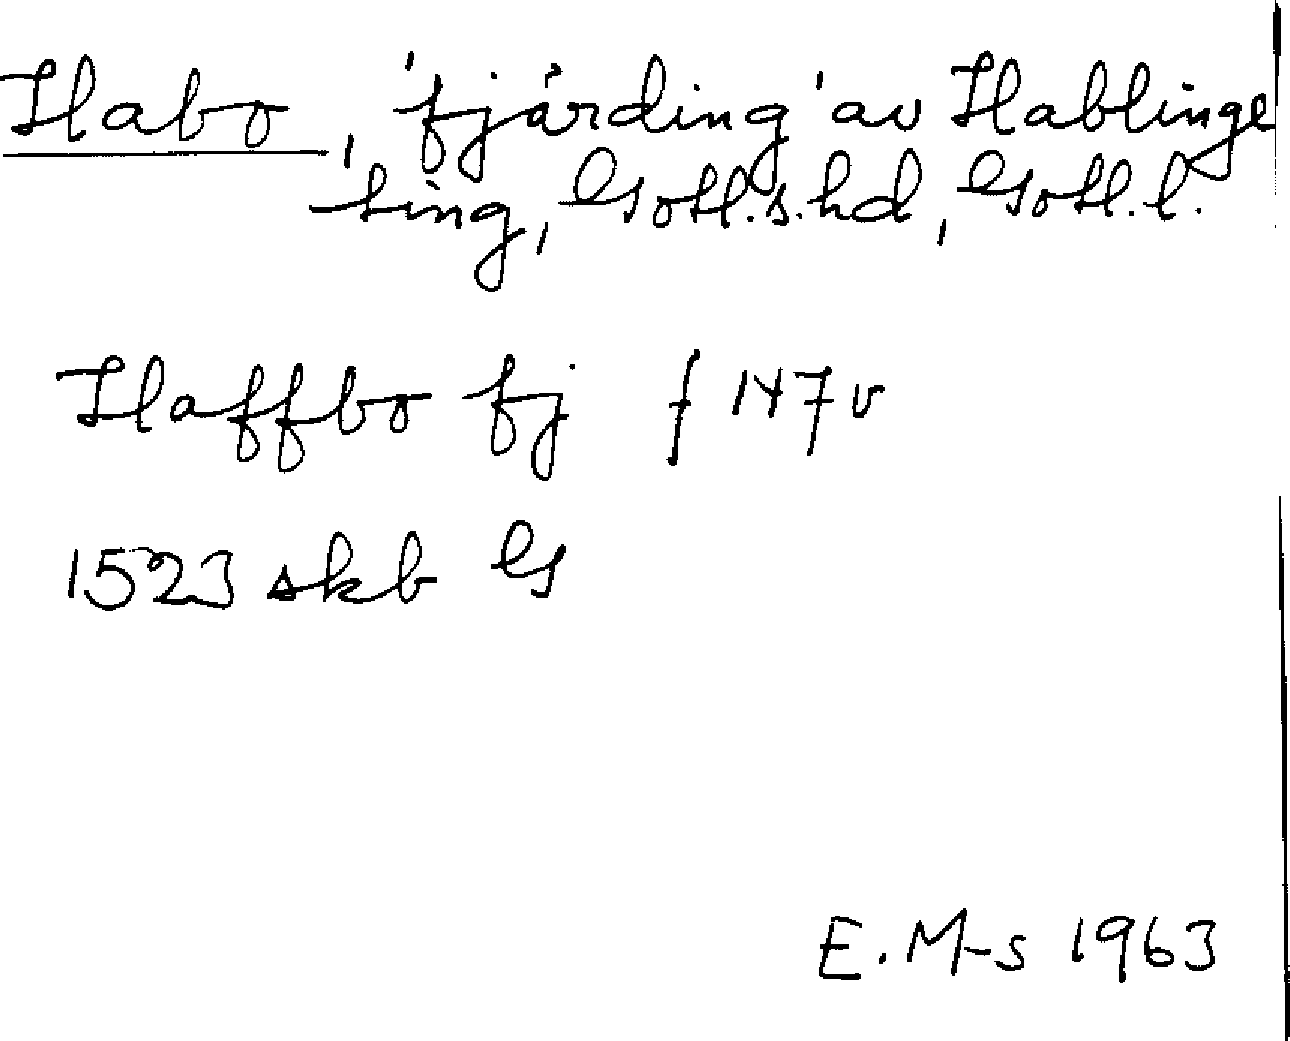 Habo, 'fjärding' av Hablinge
ting, Gotl.s.hd, Gotl.l.
Haffbo fj f 147v
1523 skb G
E.M-s 1963